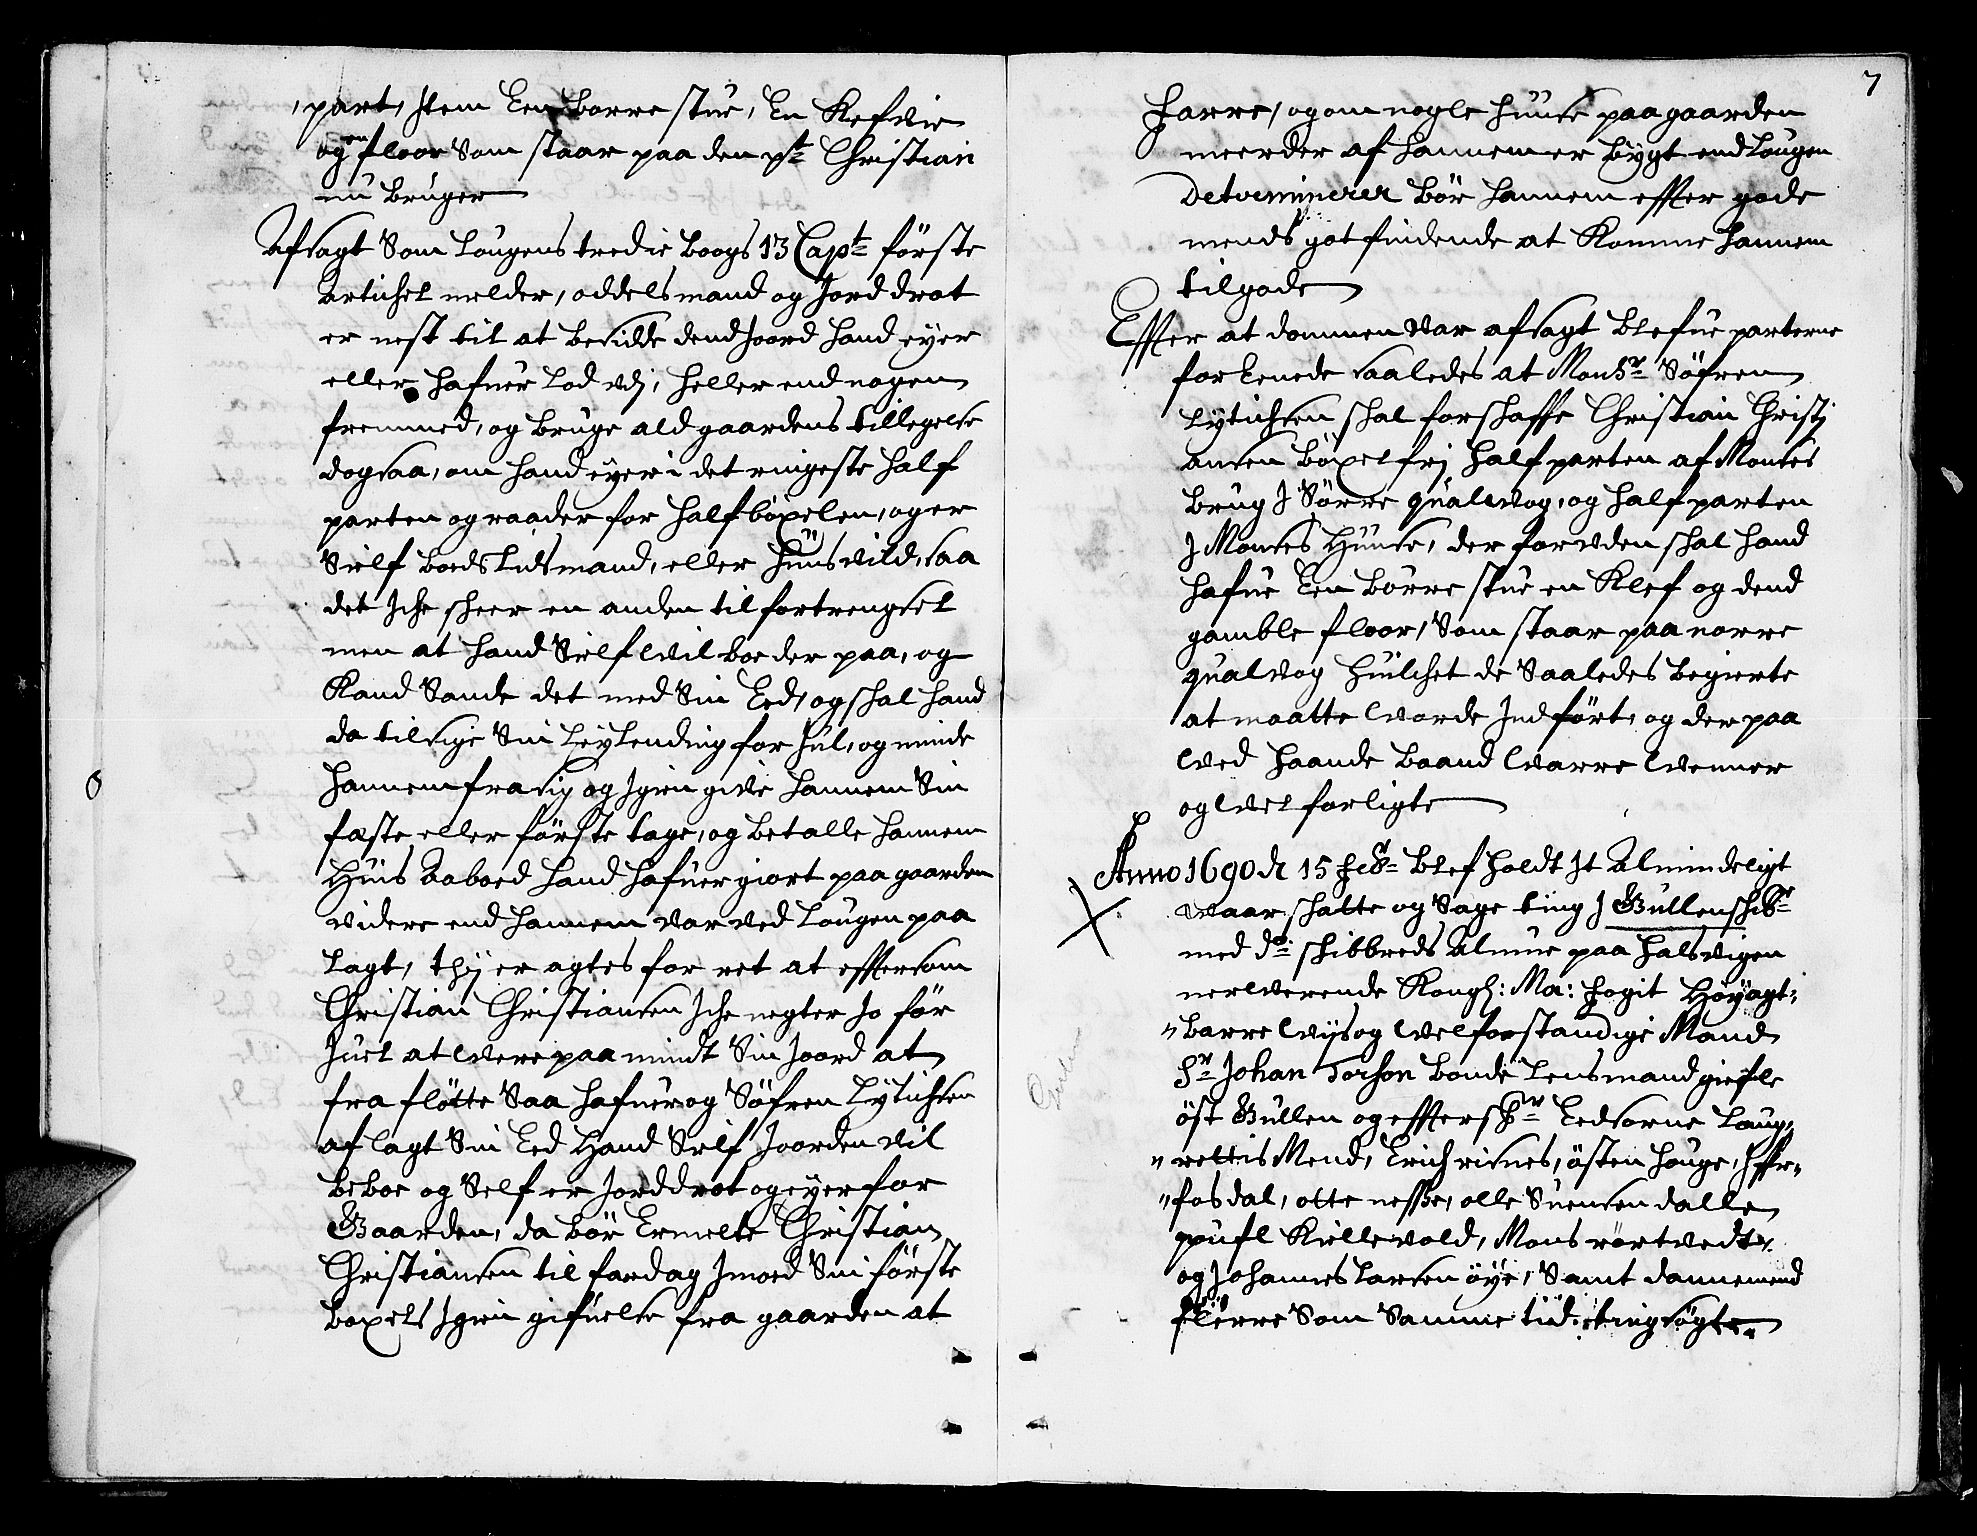 part, Jtem Een Borre stue, En Kefwie
og en floor Som staar paa den pt Christian
nu bruger
Afsagt Som Lougens tredie Boogs 13 Capt: første
Artichel melder, oddelsmand og Jorddrot
er nest til at besidde dend Joord hand eyer
eller hafuer Lod vdj, heller end nogen
fremmed, og bruge ald gaardens tilleggelse
dogsaa, om hand eyer i det ringeste half
parten og raader for half böxelen, og er
Sielf boedslidsmand, eller huusvild, saa
det Jche scheer en anden til fortrengsel
men at hand Sielf wil boe der paa, og
Kand Sande det med Sin Eed, og schal hand
da tilsige Sin Leylending for Jul, og minde
hannem fra sig og Jgien give hannem Sin
fæste eller første tage, og betalle hannem
Huis Aaboed hand hafuer giort paa gaarden
videre end hannem var ved Lougen paa
lagt, thj er agtes for ret at efftersom
Christian Christiansen Jche negter Jo før
Juel at were paa mindt Sin Joord at
fra fløtte Saa hafuer og Søfren Lytichsen
af lagt Sin Eed Hand Sielf Joorden vil
beboe og Self er Jorddrot og eyer for
Gaarden, da bør Ermelte Christian
Christiansen til fardag Jmoed Sin første
boxels Jgien gifuelse fra gaarden at
7
farre, og om nogle huuse paa gaarden
meerder af hannem er bygt end Lougen
Determinerer bør hannem effter gode
mends got findende at Komme hannem
tilgode
Effter at dommen var afsagt blefue parterne
for Eenede saaledes at Monsr: Søfren
Lytichsen schal forschaffe Christian Christj
ansen böxelfrj half parten af Monses
brug J Sørre qualvog, og half parten
J Monses Huuse, der foruden schal hand
hafue Een børre stue en Klef og dend
gamble floor, Som staar paa norre
qualvog huilchet de Saaledes begierte
at maatte worde Jndført, og der paa
wed haande baand warre wenner
og wel forligte
Anno 1690 d 15 febr: blef holdt Jt Almindeligt
waar schatte og Sage ting J Gullenschbr:
med do: schibbreds Almue paa halsvigen
nerwerende Kongl: Ma: fogit Høyagt
barre wijs og welforstandige Mand
Sr: Johan Torson bonde Lensmand giefle
öst Gullen og effterschr: Eedsorne Laug
rettis Mend, Erich risnes, östen houge,
fosdal, otte nesse, olle Suensen dalle
poufl Kiellevold, Mons rørtvedt
og Johannes Larsen öye, Samt dannemend
flerre Som Samme tiid tingsøgte